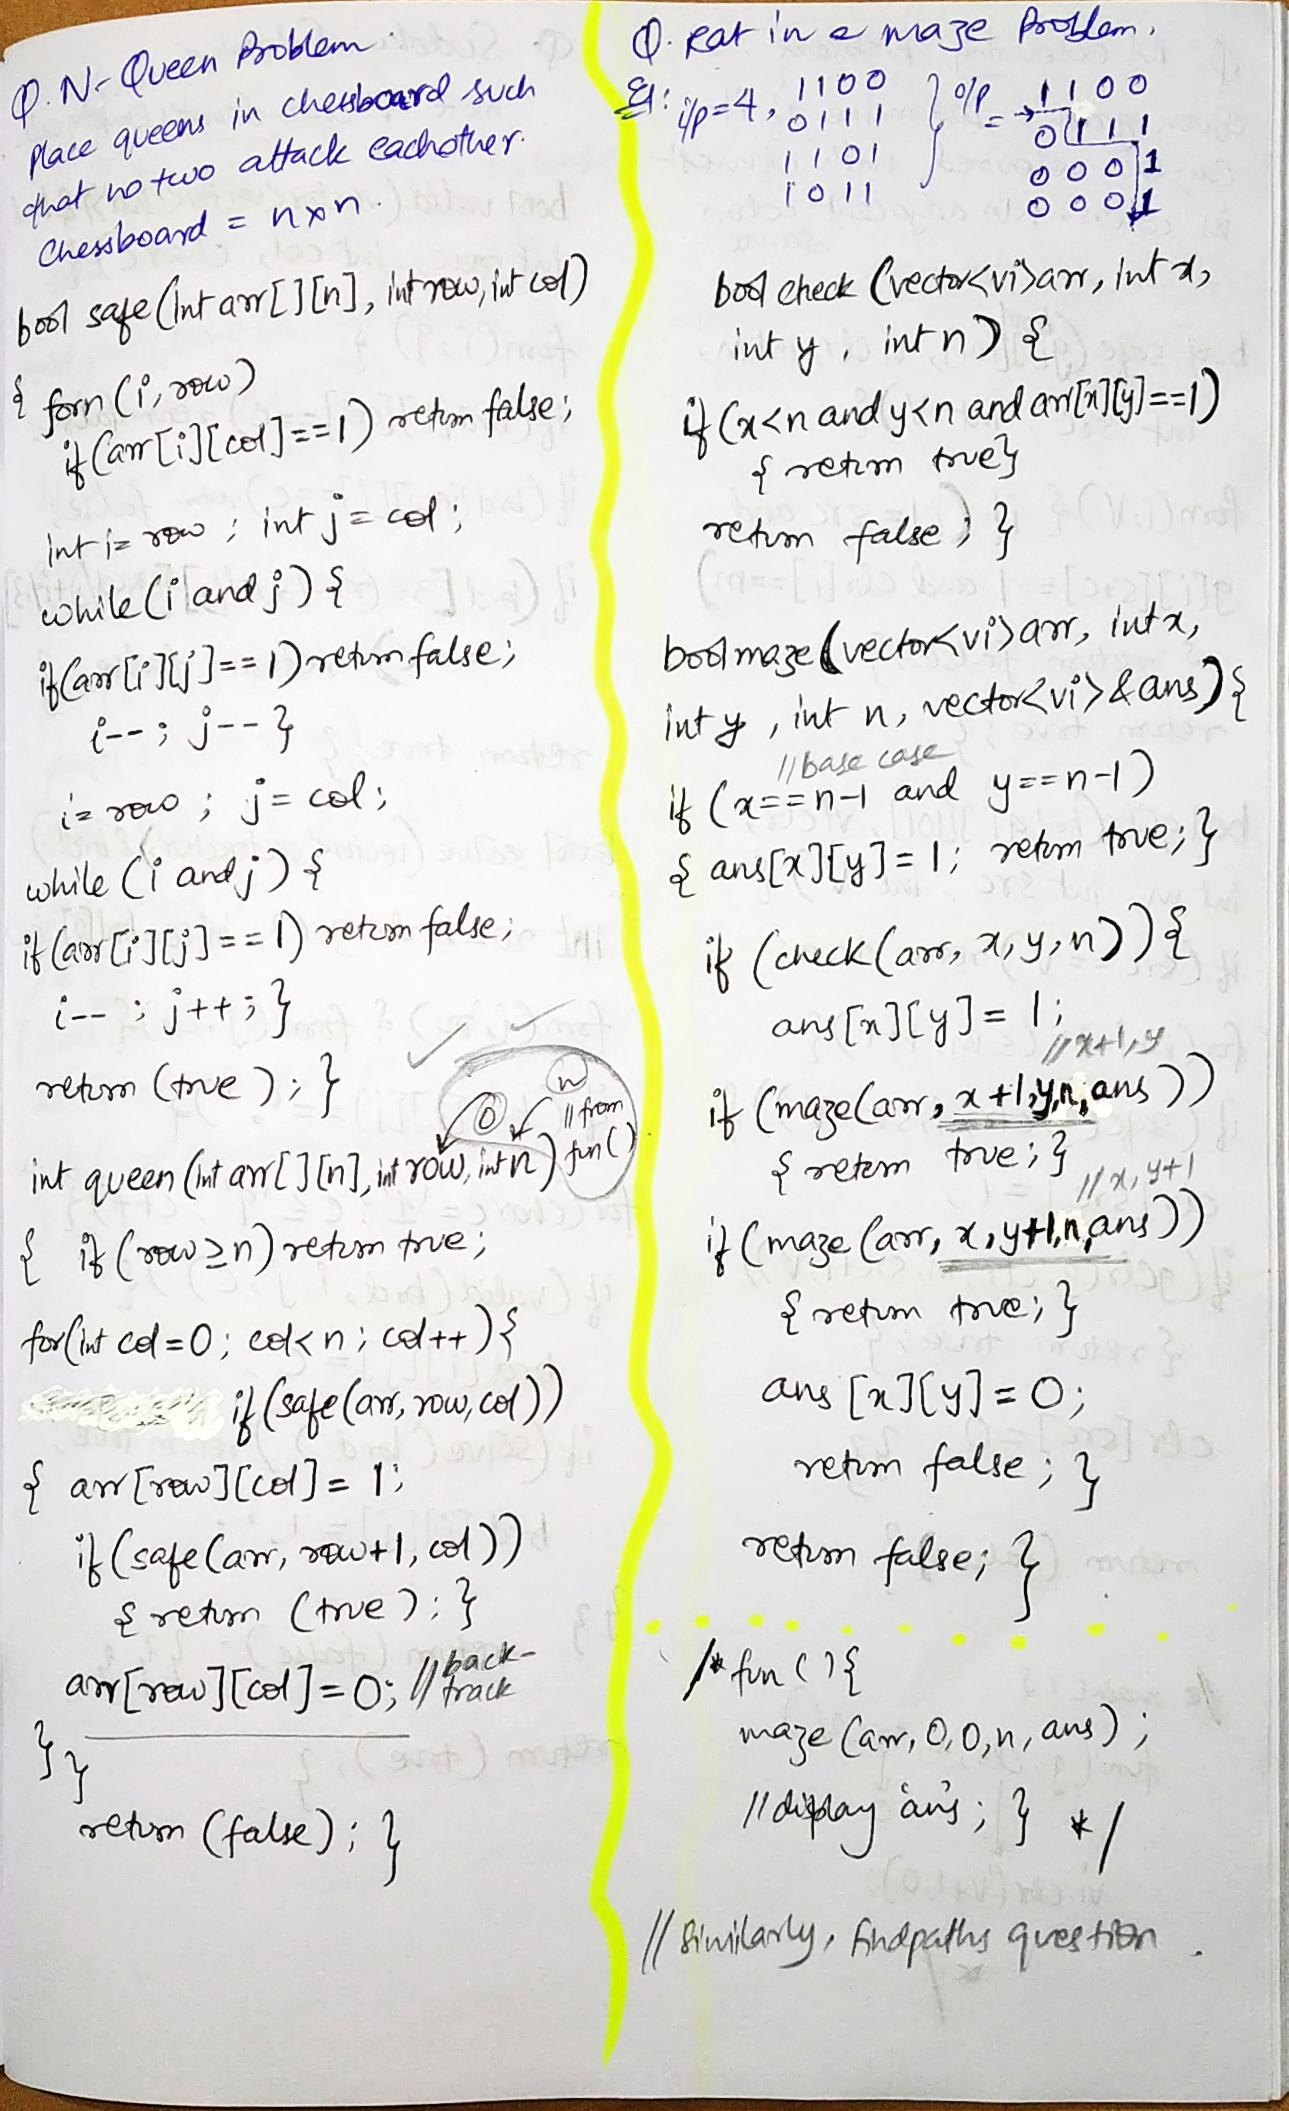 Q. N-Queen Problem.
Place queens in chessboard such
that no two attack eachother.
Chessboard = n×n.
bool safe(int arr[][n], int row, int col)
{ forn(i, row)
if(arr[i][col]==1) return false;
int i= row ; int j = col ;
while (i and j) {
if(arr[i][j]==1) return false;
i--; j--}
i= row ; j= col;
while (i and j) {
if(arr[i][j]==1) return false;
i-- ; j++;}
return (true); }
0
n
// from
fun()
int queen(int arr[][n], int row, int n)
{ if (row≥n) return true;
for(int col=0; col<n; col++){
if(safe(arr, row, col))
{ arr[row][col] = 1;
if (safe(arr, row+1, col))
{ return (true); }
arr[row][col]=0; //back-
track
}}
return (false); }
Q. Rat in a maze Problem.
Ex: i/p=4, 1100 } o/p = → 1100
0111 0111
1101 0001
1011 0001
bool check (vector<vi>arr, int x,
int y, int n) {
if (x<n and y<n and arr[x][y]==1)
{ return true}
return false; }
bool maze(vector<vi>arr, int x,
int y, int n, vector<vi>&ans){
//base case
if (x==n-1 and y==n-1)
{ ans[x][y]=1; return true;}
if (check(arr, x,y,n)){
ans[x][y] = 1;
//x+1,y
if (maze(arr, x+1,y,n,ans))
{ return true;}
//x,y+1
if (maze(arr, x,y+1,n,ans))
{ return true;}
ans [x][y] = 0;
return false; }
return false; }
/* fun(){
maze (arr,0,0,n,ans);
//display 'ans'; } */
// Similarly, findpaths question.